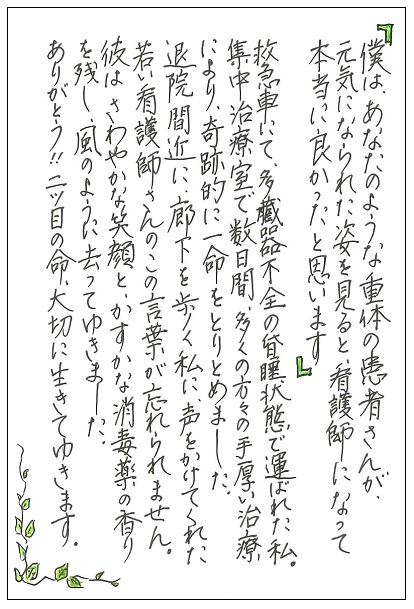 『僕は、あなたのような重体の患者さんが、
元気になられた姿を見ると、看護師になって
本当に良かったと思います』
救急車にて、多臓器不全の昏睡状態で運ばれた私。
集中治療室で数日間、多くの方々の手厚い治療、
により、奇跡的に一命をとりとめました。
退院間近に、廊下を歩く私に、声をかけてくれた
若い看護師さんのこの言葉が忘れられません。
彼はさわやかな笑顔と、かすかな消毒薬の香り
を残し、風のように去ってゆきました。
ありがとう!!二ツ目の命、大切に生きてゆきます。